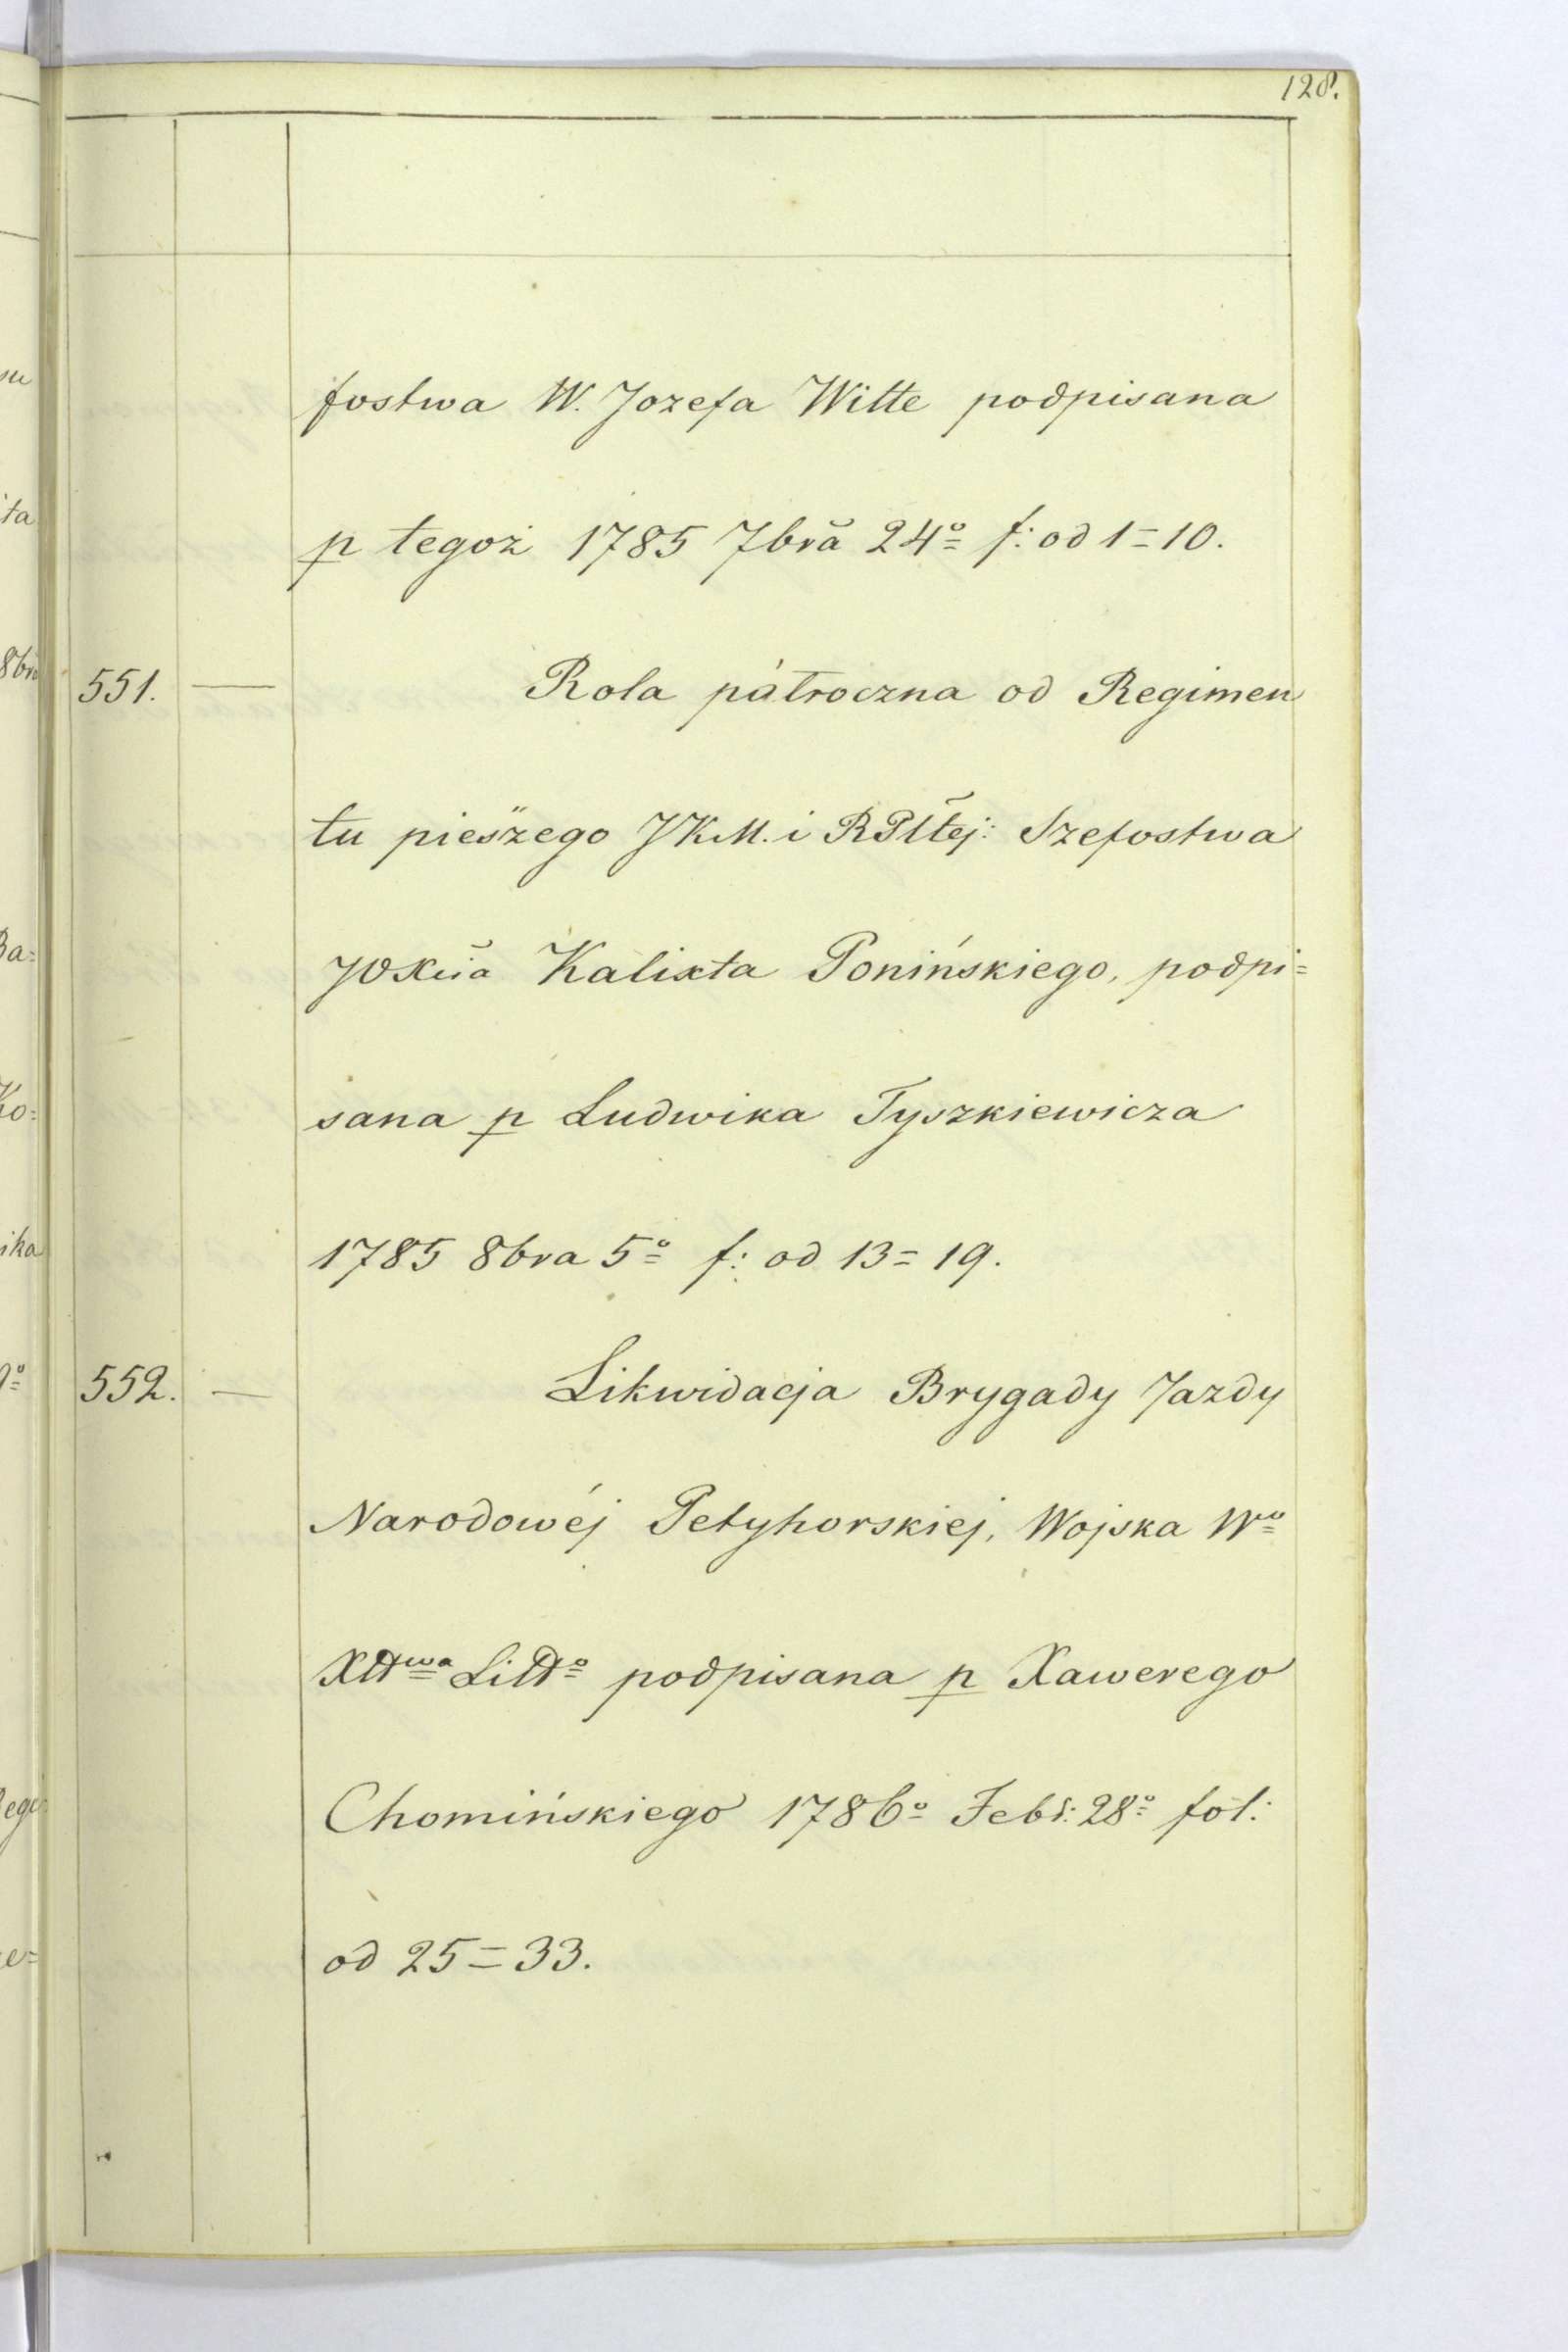 128.
fostwa W. Jozefa Witte podpisana
p tegoż 1785 7bra 24º f: od 1=10.
551. — Rola pòłroczna od Regimen
tu pieszego JKM. i RPltej: Szefostwa
JOXcia Kalixta Ponińskiego, podpi=
sana p Ludwika Tyszkiewicza
1785 8bra 5º f: od 13=19.
552. — Likwidacja Brygady Jazdy
Narodowéj Petyhorskiej, Wojska Wº
Xttwa Littº podpisana p Xawerego
Chomińskiego 1786º Febr: 28º fol:
od 25=33.